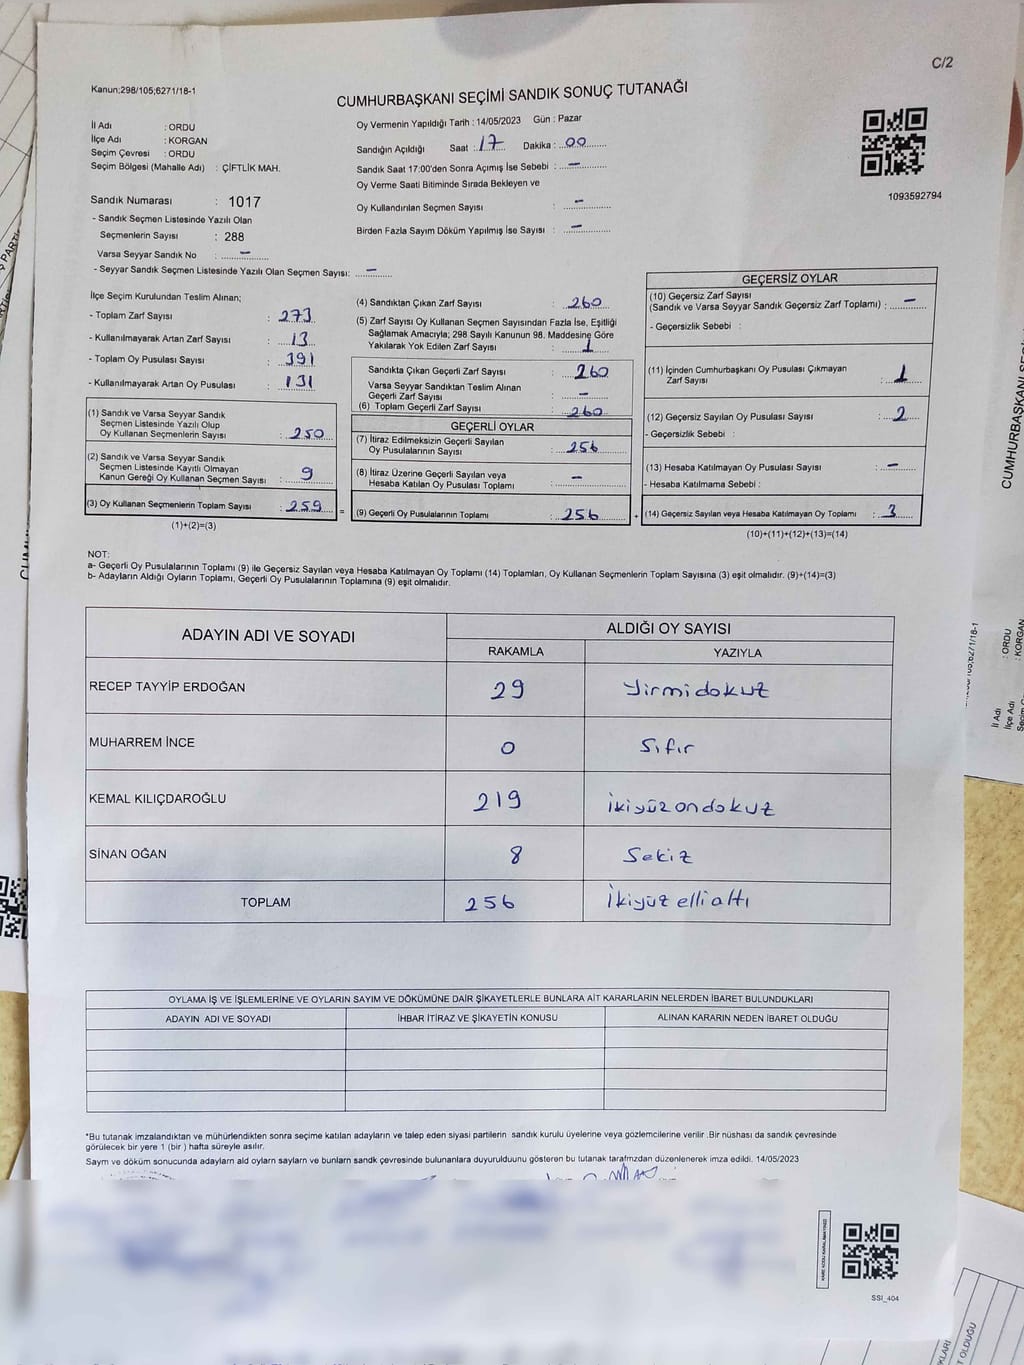 C/2
Kanun;298/105;6271/18-1
CUMHURBAŞKANI SEÇİMİ SANDIK SONUÇ TUTANAĞI
İl Adı : ORDU
İlçe Adı : KORGAN
Seçim Çevresi : ORDU
Seçim Bölgesi (Mahalle Adı) : ÇİFTLİK MAH.
Sandık Numarası : 1017
- Sandık Seçmen Listesinde Yazılı Olan
Seçmenlerin Sayısı : 288
Varsa Seyyar Sandık No : –
- Seyyar Sandık Seçmen Listesinde Yazılı Olan Seçmen Sayısı: –
Oy Vermenin Yapıldığı Tarih : 14/05/2023 Gün : Pazar
Sandığın Açıldığı Saat : 17 Dakika : 00
Sandık Saat 17:00'den Sonra Açımış İse Sebebi : –
Oy Verme Saati Bitiminde Sırada Bekleyen ve
Oy Kullandırılan Seçmen Sayısı : –
Birden Fazla Sayım Döküm Yapılmış İse Sayısı : –
1093592794
İlçe Seçim Kurulundan Teslim Alınan;
- Toplam Zarf Sayısı : 273
- Kullanılmayarak Artan Zarf Sayısı : 13
- Toplam Oy Pusulası Sayısı : 391
- Kullanılmayarak Artan Oy Pusulası : 131
(1) Sandık ve Varsa Seyyar Sandık
Seçmen Listesinde Yazılı Olup
Oy Kullanan Seçmenlerin Sayısı : 250
(2) Sandık ve Varsa Seyyar Sandık
Seçmen Listesinde Kayıtlı Olmayan
Kanun Gereği Oy Kullanan Seçmen Sayısı : 9
(3) Oy Kullanan Seçmenlerin Toplam Sayısı : 259 =
(1)+(2)=(3)
(4) Sandıktan Çıkan Zarf Sayısı : 260
(5) Zarf Sayısı Oy Kullanan Seçmen Sayısından Fazla İse, Eşitliği
Sağlamak Amacıyla; 298 Sayılı Kanunun 98. Maddesine Göre
Yakılarak Yok Edilen Zarf Sayısı : 1
Sandıkta Çıkan Geçerli Zarf Sayısı : 260
Varsa Seyyar Sandıktan Teslim Alınan
Geçerli Zarf Sayısı : –
(6) Toplam Geçerli Zarf Sayısı : 260
GEÇERLİ OYLAR
(7) İtiraz Edilmeksizin Geçerli Sayılan
Oy Pusulalarının Sayısı : 256
(8) İtiraz Üzerine Geçerli Sayılan veya
Hesaba Katılan Oy Pusulası Toplamı : –
(9) Geçerli Oy Pusulalarının Toplamı : 256 +
GEÇERSİZ OYLAR
(10) Geçersiz Zarf Sayısı
(Sandık ve Varsa Seyyar Sandık Geçersiz Zarf Toplamı) : –
- Geçersizlik Sebebi :
(11) İçinden Cumhurbaşkanı Oy Pusulası Çıkmayan
Zarf Sayısı : 1
(12) Geçersiz Sayılan Oy Pusulası Sayısı : 2
- Geçersizlik Sebebi :
(13) Hesaba Katılmayan Oy Pusulası Sayısı : –
- Hesaba Katılmama Sebebi :
(14) Geçersiz Sayılan veya Hesaba Katılmayan Oy Toplamı : 3
(10)+(11)+(12)+(13)=(14)
NOT:
a- Geçerli Oy Pusulalarının Toplamı (9) ile Geçersiz Sayılan veya Hesaba Katılmayan Oy Toplamı (14) Toplamları, Oy Kullanan Seçmenlerin Toplam Sayısına (3) eşit olmalıdır. (9)+(14)=(3)
b- Adayların Aldığı Oyların Toplamı, Geçerli Oy Pusulalarının Toplamına (9) eşit olmalıdır.
ADAYIN ADI VE SOYADI ALDIĞI OY SAYISI
RAKAMLA YAZIYLA
RECEP TAYYİP ERDOĞAN 29 Yirmidokuz
MUHARREM İNCE 0 Sıfır
KEMAL KILIÇDAROĞLU 219 ikiyüzondokuz
SİNAN OĞAN 8 Sekiz
TOPLAM 256 İkiyüz elli altı
OYLAMA İŞ VE İŞLEMLERİNE VE OYLARIN SAYIM VE DÖKÜMÜNE DAİR ŞİKAYETLERLE BUNLARA AİT KARARLARIN NELERDEN İBARET BULUNDUKLARI
ADAYIN ADI VE SOYADI İHBAR İTİRAZ VE ŞİKAYETİN KONUSU ALINAN KARARIN NEDEN İBARET OLDUĞU
*Bu tutanak imzalandıktan ve mühürlendikten sonra seçime katılan adayların ve talep eden siyasi partilerin sandık kurulu üyelerine veya gözlemcilerine verilir .Bir nüshası da sandık çevresinde
görülecek bir yere 1 (bir ) hafta süreyle asılır.
Saym ve döküm sonucunda adaylarn ald oylarn saylarn ve bunlarn sandk çevresinde bulunanlara duyurulduunu gösteren bu tutanak tarafmzdan düzenlenerek imza edildi. 14/05/2023
SSI_404
CUMHURBAŞKANI SE
İl Adı : ORDU
İlçe Adı : KORGAN
OLDUĞU